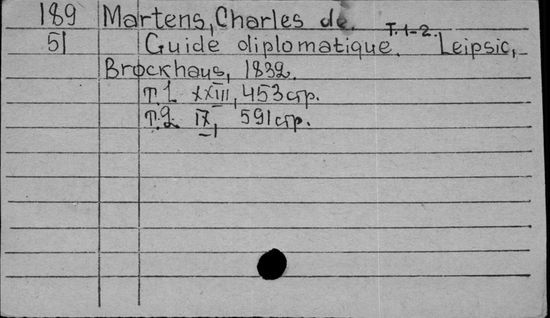 189 Martens, Charles de.
51 Guide diplomatique. Т. 1-2. Leipsic,
Brockhaus, 1832.
т.1 XXIII, 453 стр.
т.2 IX, 591 стр.